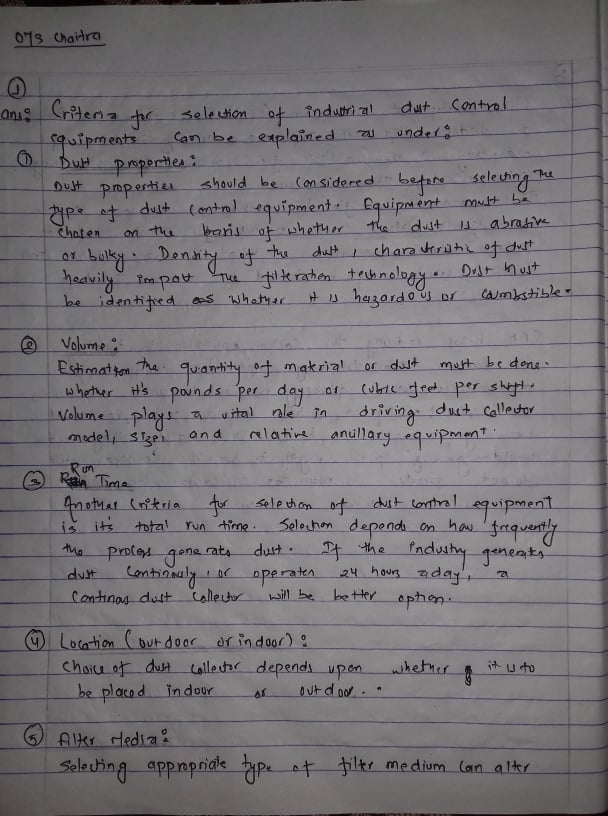 073 Chaitra
①
ans: Criteria for selection of industrial dust control
equipments can be explained as under:
① Dust properties:
Dust properties should be considered before selecting the
type of dust control equipment. Equipment must be
chosen on the basis of whether the dust is abrasive
or bulky. Density of the dust, characteristic of dust
heavily impact the filteration technology. Dust must
be identified as whether it is hazardous or cumbstible.
② Volume:
Estimation the quantity of material or dust must be done.
whether it's pounds per day or cubic feet per shift.
Volume plays a vital role in driving dust collector
model, size, and relative ancillary equipment.
③ Run Time
Another criteria for selection of dust control equipment
is it's total run time. Selection depends on how frequently
the process generates dust. If the industry generates
dust continously, or operates 24 hours a day, a
continous dust collector will be better option.
④ Location (outdoor or indoor):
Choice of dust collector depends upon whether it is to
be placed indour or outdoor.
⑤ Filter Media:
Selecting appropriate type of filter medium can alter